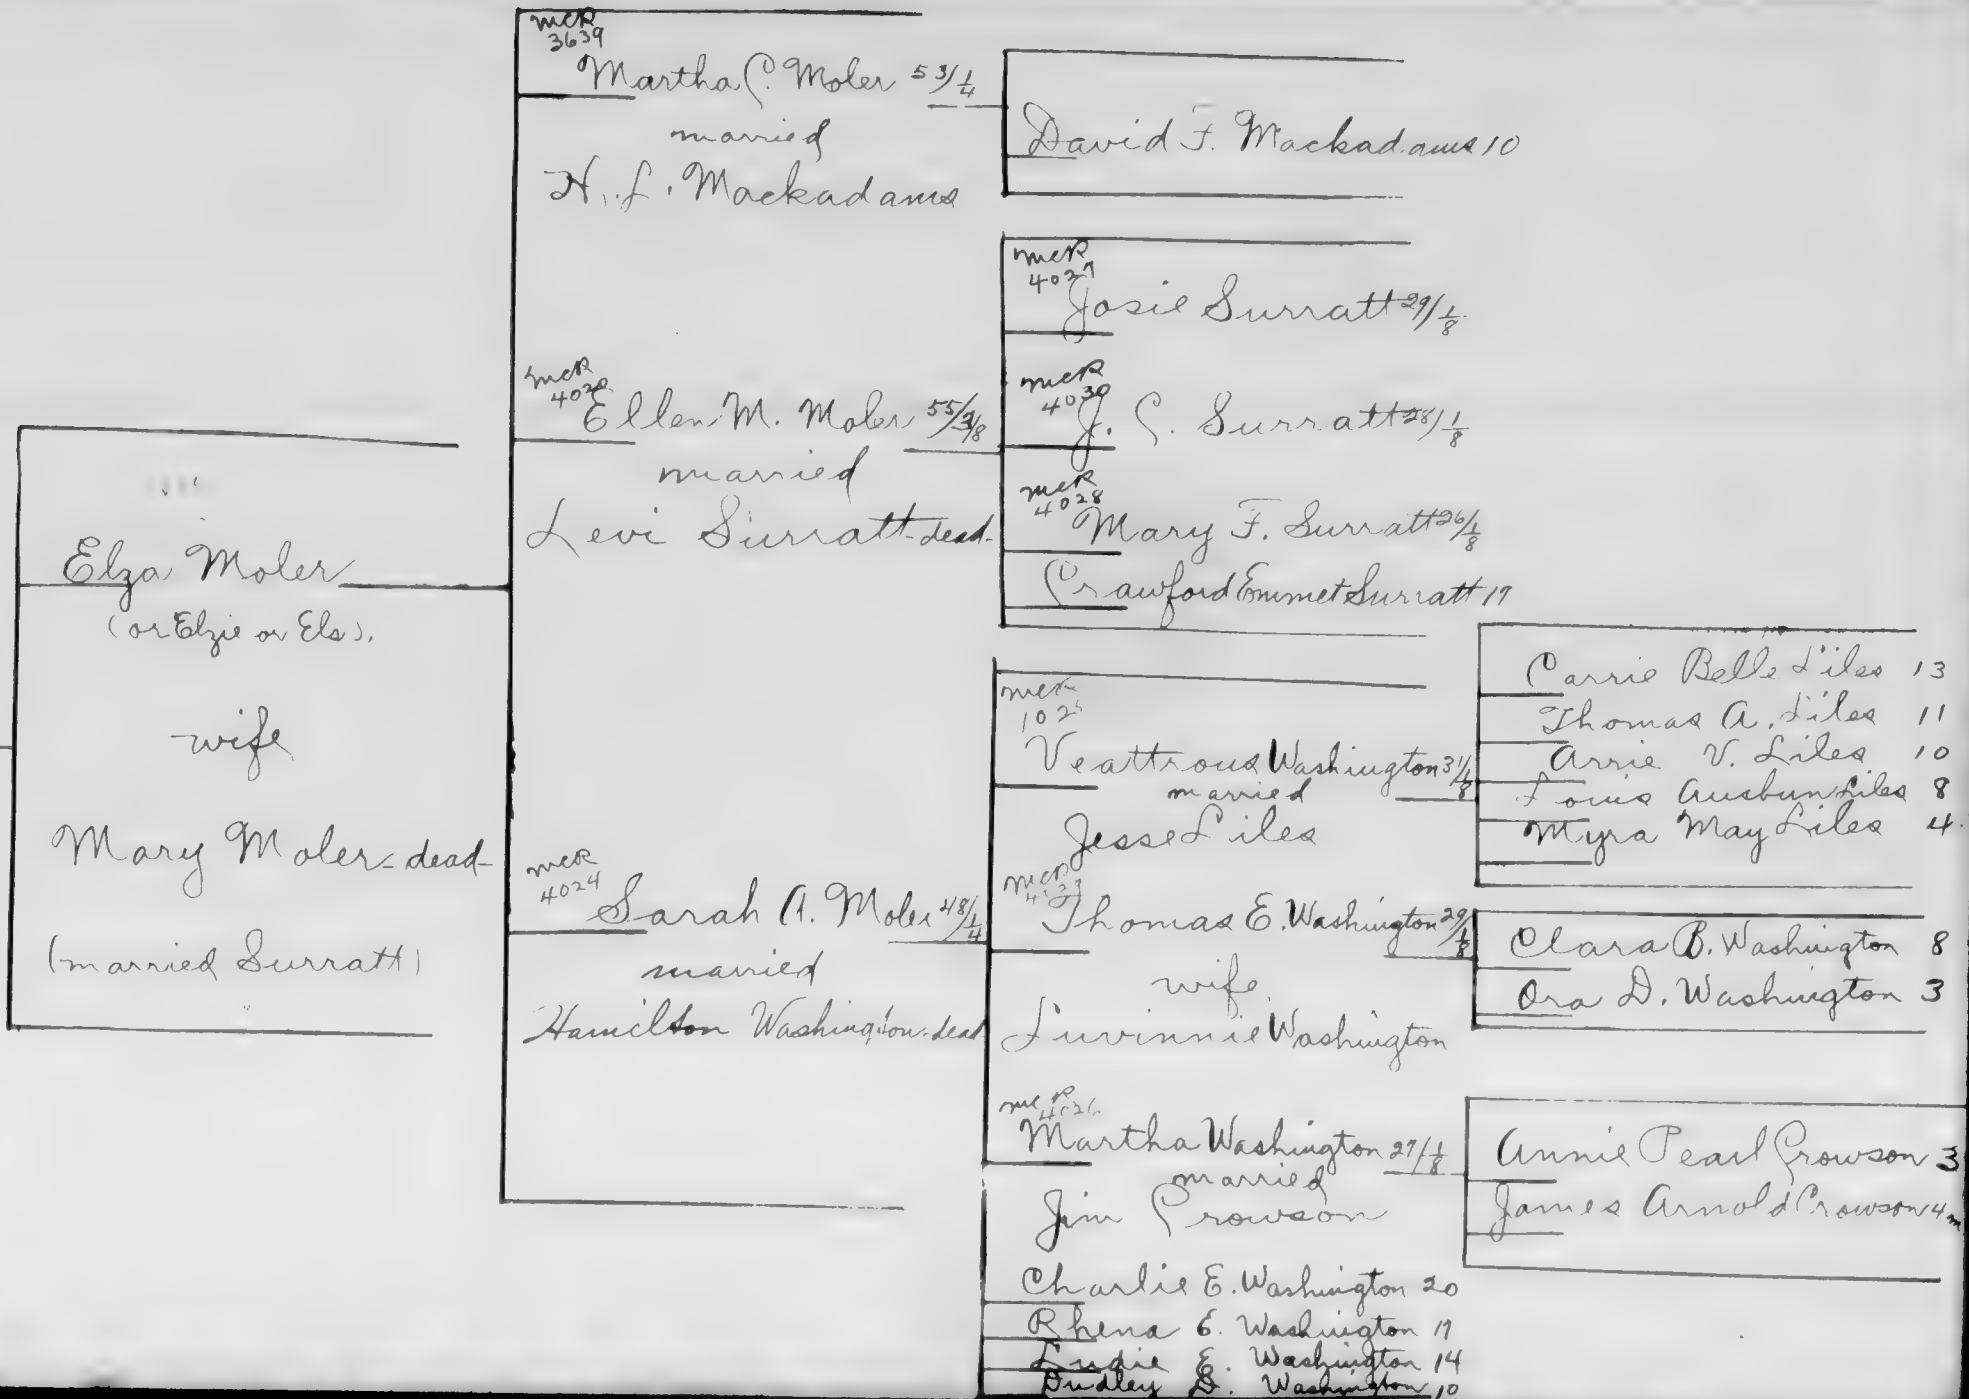 Elza Moler
(or Elzie or Els).
wife
Mary Moler - dead -
(married Surratt)
mcR
3639
Martha C. Moler 53/1/4
married
H. L. Mackadams
mcR
Ellen M. Moler 55/3/8
married
Levi Surratt - dead -
mcR
4024
Sarah A. Moler 48/1/4
married
Hamilton Washington - dead
David F. Mackadams 10
mcR
4027
Josie Surratt 29/1/8
mcR
4030
J. C. Surratt 28/1/8
mcR
4028
Mary F. Surratt 26/1/8
Crawford Emmet Surratt 17
mcR
Veattrous Washington 31/1/8
married
Jesse Liles
mcR
Thomas E. Washington 29/1/8
wife
Luvinnie Washington
mcR
4026
Martha Washington 27/1/8
married
Jim Crowson
Charlie E. Washington 20
Rhena E. Washington 17
Ludie E. Washington 14
Dudley D. Washington 10
Carrie Belle Liles 13
Thomas A. Liles 11
Arrie V. Liles 10
Louis Ausbun Liles 8
Myra May Liles 4
Clara B. Washington 8
Ora D. Washington 3
Annie Pearl Crowson 3
James Arnold Crowson 4m